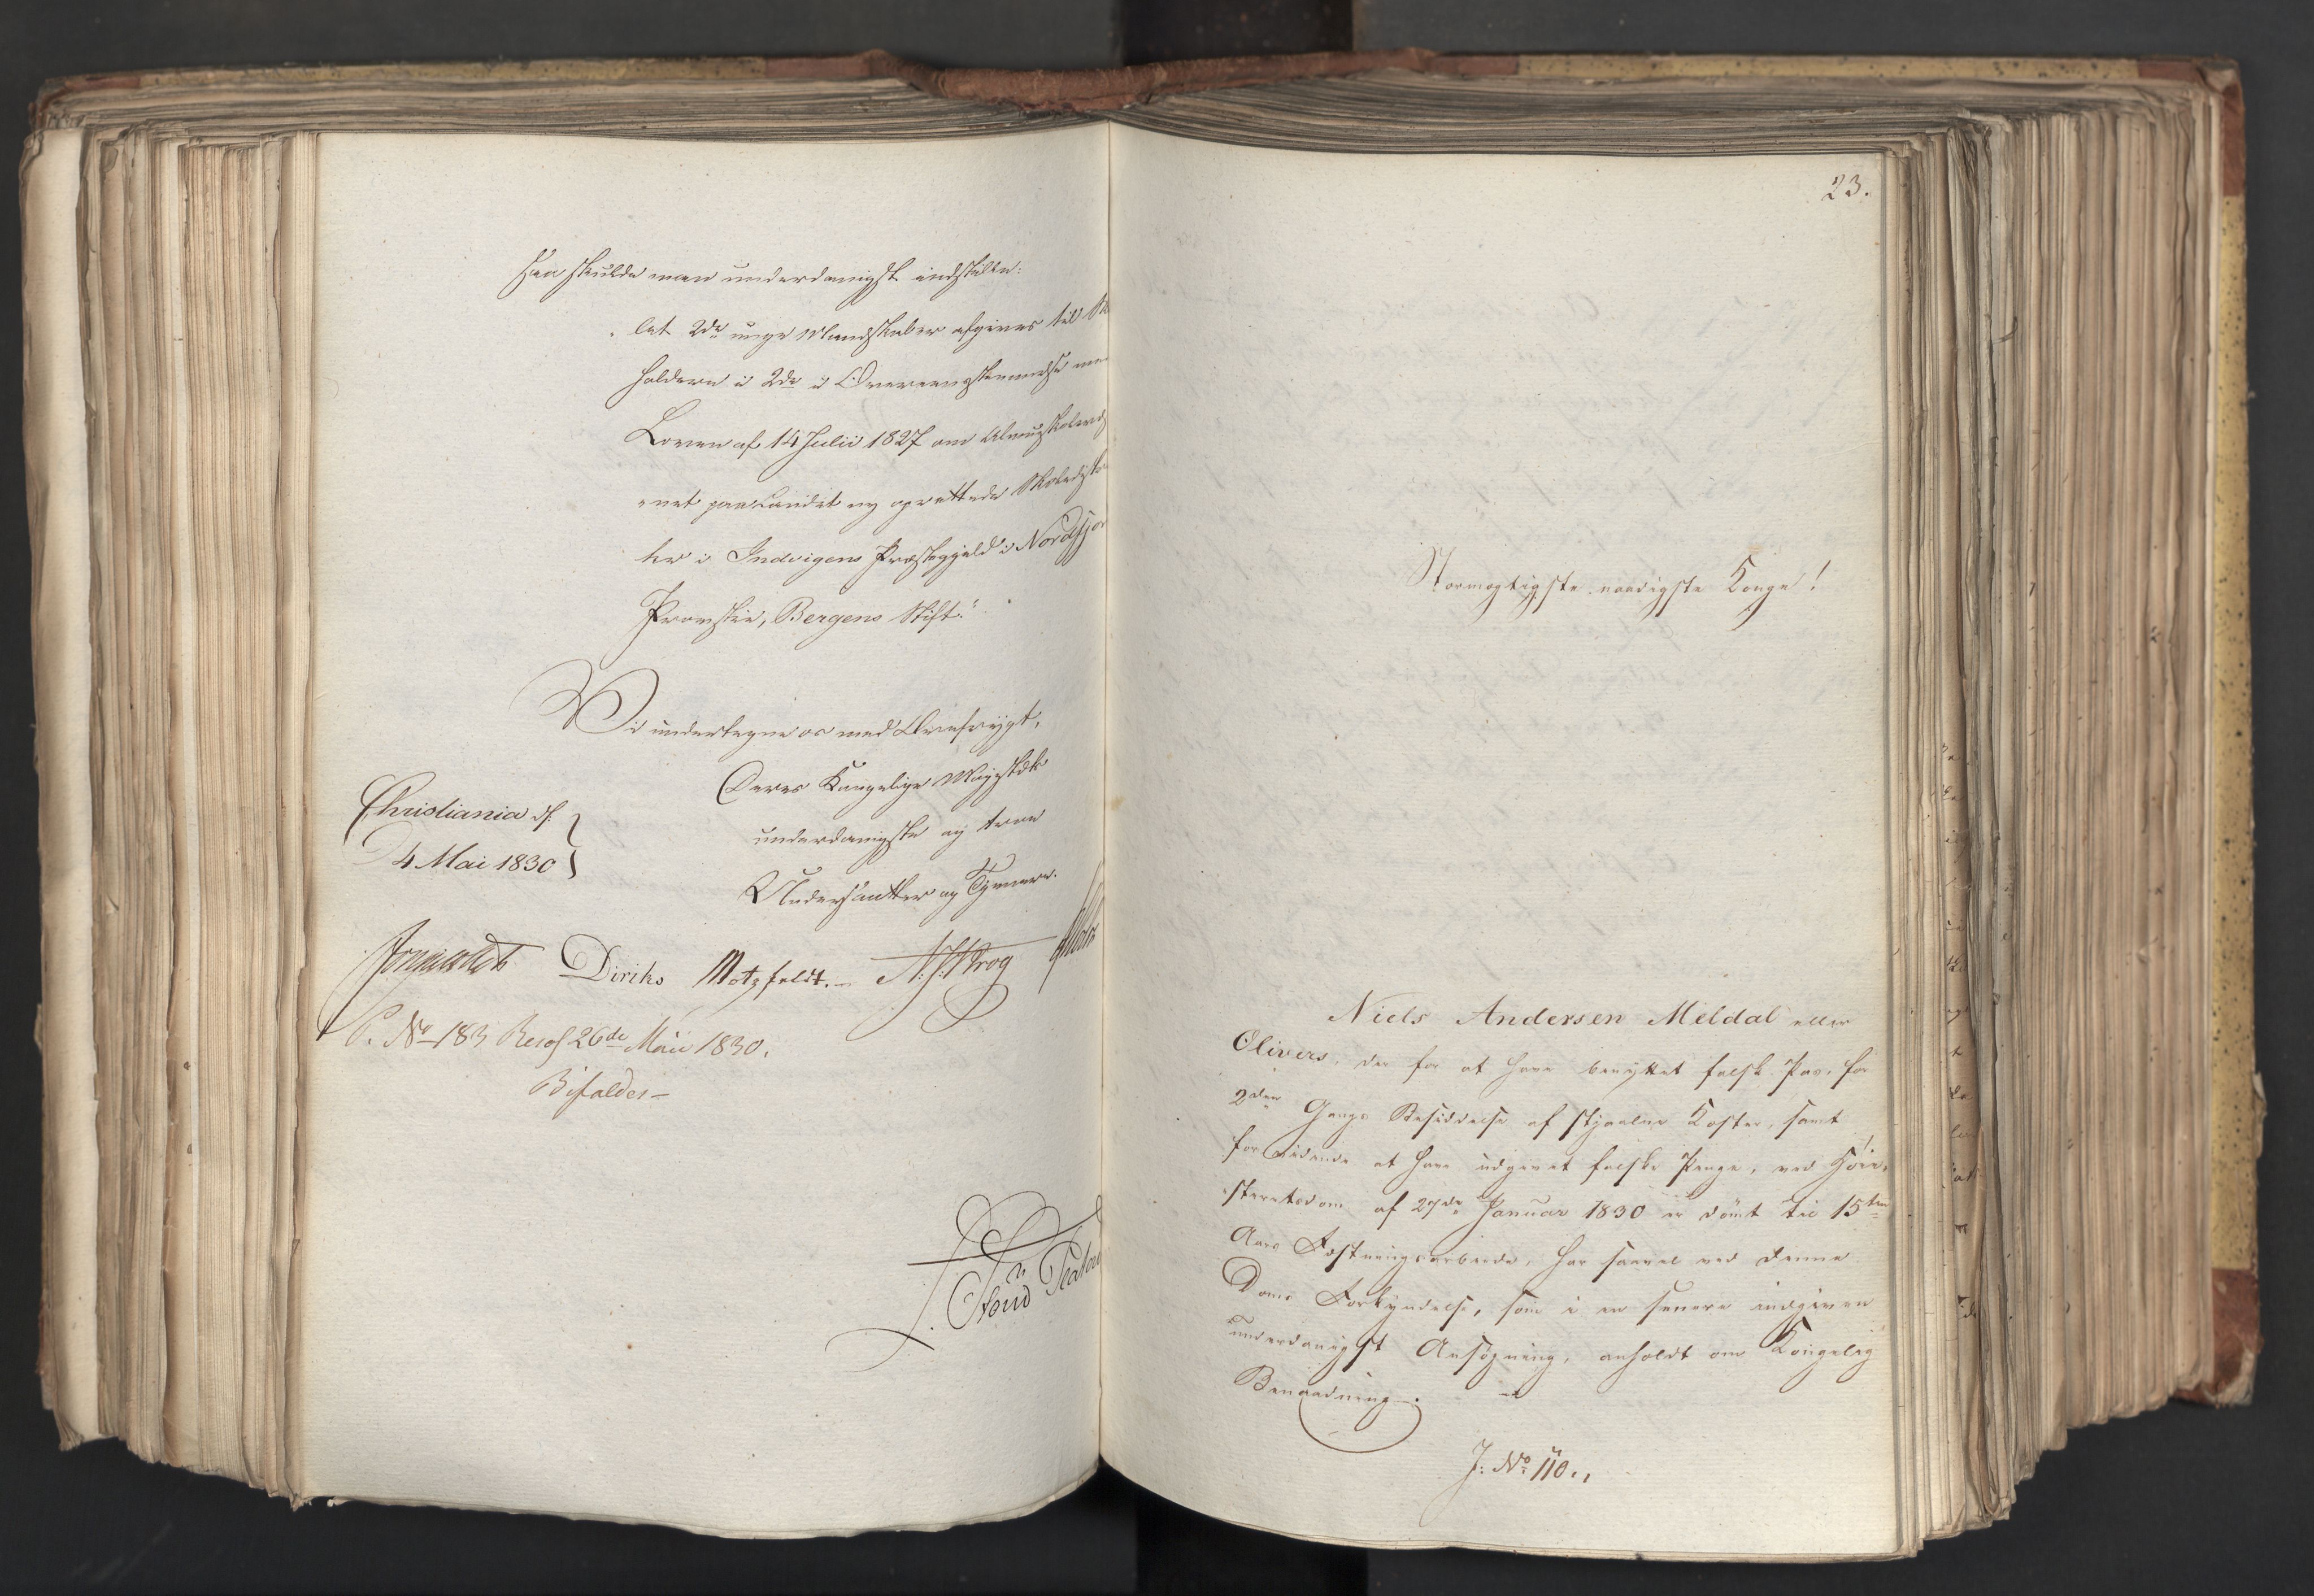 skulde man underdanigst indstille:
"at 2de unge Mandskaber afgives til
holdere i 2de i Overeensstemmelse
Loven af 14 Julii 1827 om Almueskolevæs
enet paa Landet ny oprettede Skoledistr
ter i Indvigens Præstegjeld i Nordfjor
Provstie, Bergens Stift."
Vi undertegne os med Ærefrygt,
Deres Kongelige Majestæts
underdanigste og troe
Undersaatter og Tjenere.
Christiania d.
4 Mai 1830
Diriks Motzfeldt.
P. No 183 Resol 26de Maii 1830.
Bifaldes
23.
Stormægtigste naadigste Konge!
Niels Andersen Meldal eller
Olivers, der for at have benyttet falsk Pas, for
2den Gangs Besiddelse af stjaalne Koster, samt
for vidende at have udgivet falske Penge, ved Høie-
steretsdom af 27de Januar 1830 er dømt til 15ten
Aars Fæstningsarbeide, har saavel ved denne
Doms Forkyndelse, som i en senere indgiven
underdanigst Ansøgning, anholdt om Kongelig
Benaadning.
J: No 110.